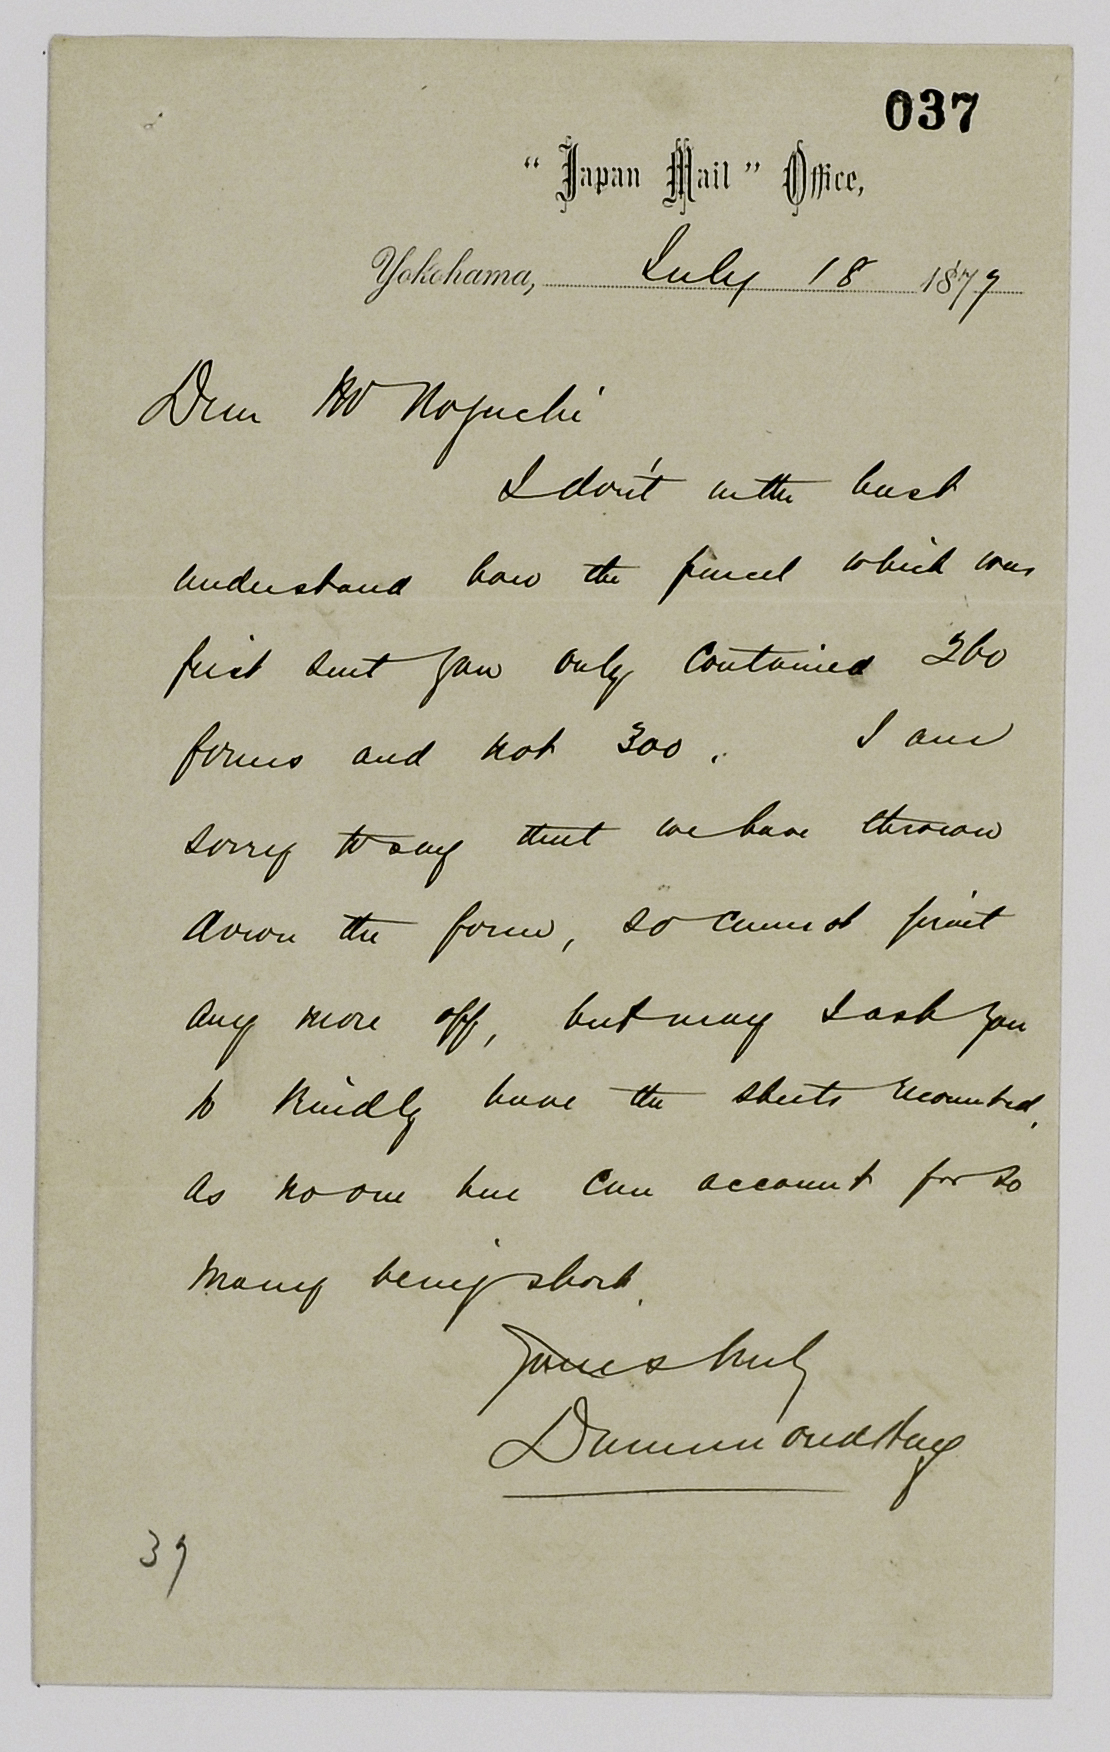 037
“Japan Mail” Office,
Yokohama, July 18 1879
Dear Mr Noguchi
I don't in the least
understand how the parcel which was
first sent you only contained 260
forms and not 300. I am
sorry to say that we have thrown
down the form, so cannot print
any more off, but may I ask you
to kindly have the sheets recounted,
as no one here can account for so
many being short.
Yours truly
Drummond Hay
39